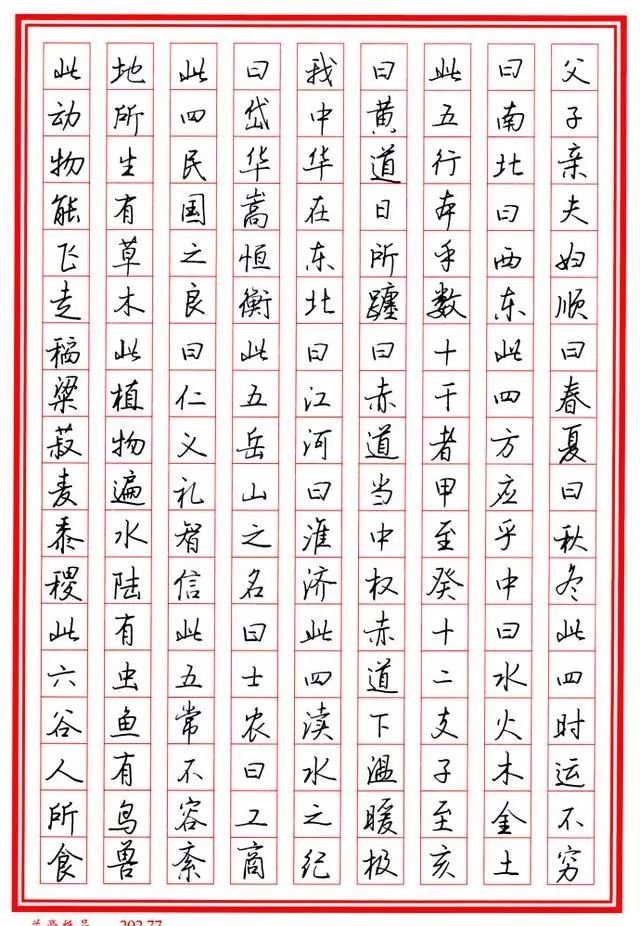 父子亲夫妇顺曰春夏曰秋冬此四时运不穷
曰南北曰西东此四方应乎中曰水火木金土
此五行本乎数十干者甲至癸十二支子至亥
曰黄道日所躔曰赤道当中权赤道下温暖极
我中华在东北曰江河曰淮济此四渎水之纪
曰岱华嵩恒衡此五岳山之名曰士农曰工商
此四民国之良曰仁义礼智信此五常不容紊
地所生有草木此植物遍水陆有虫鱼有鸟兽
此动物能飞走稻粱菽麦黍稷此六谷人所食
202.77